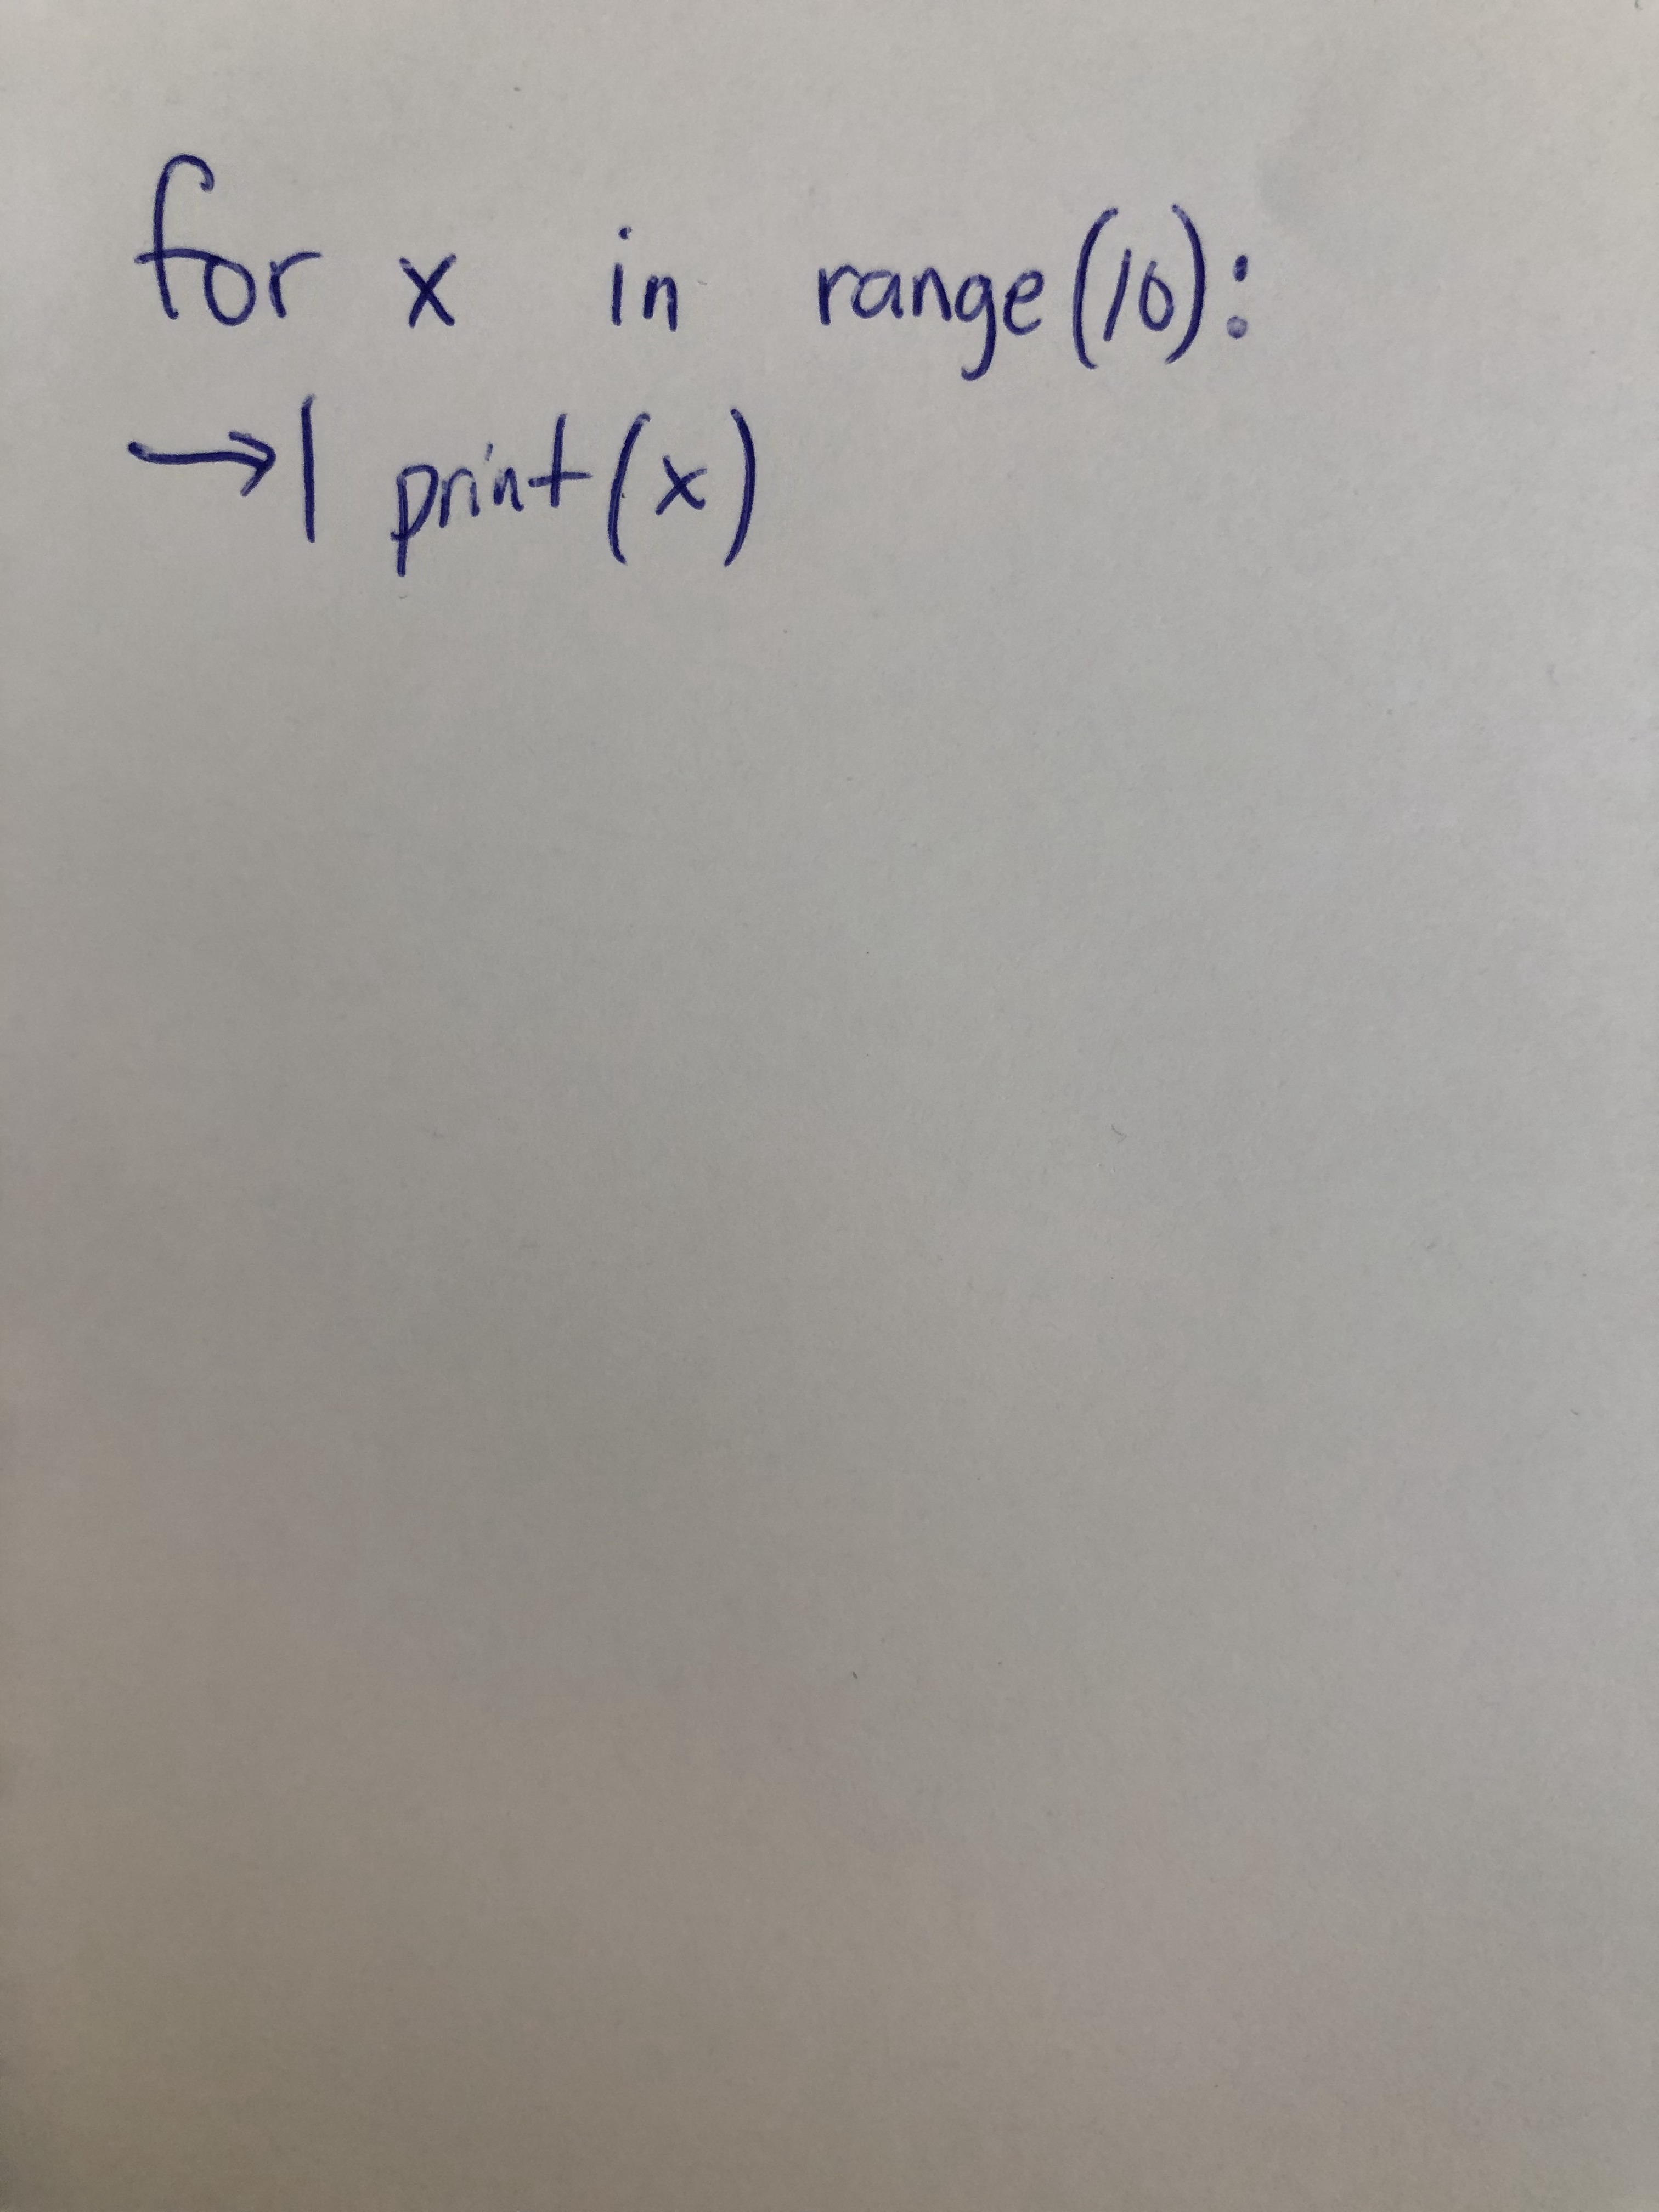 for x in range(10):
→| print(x)